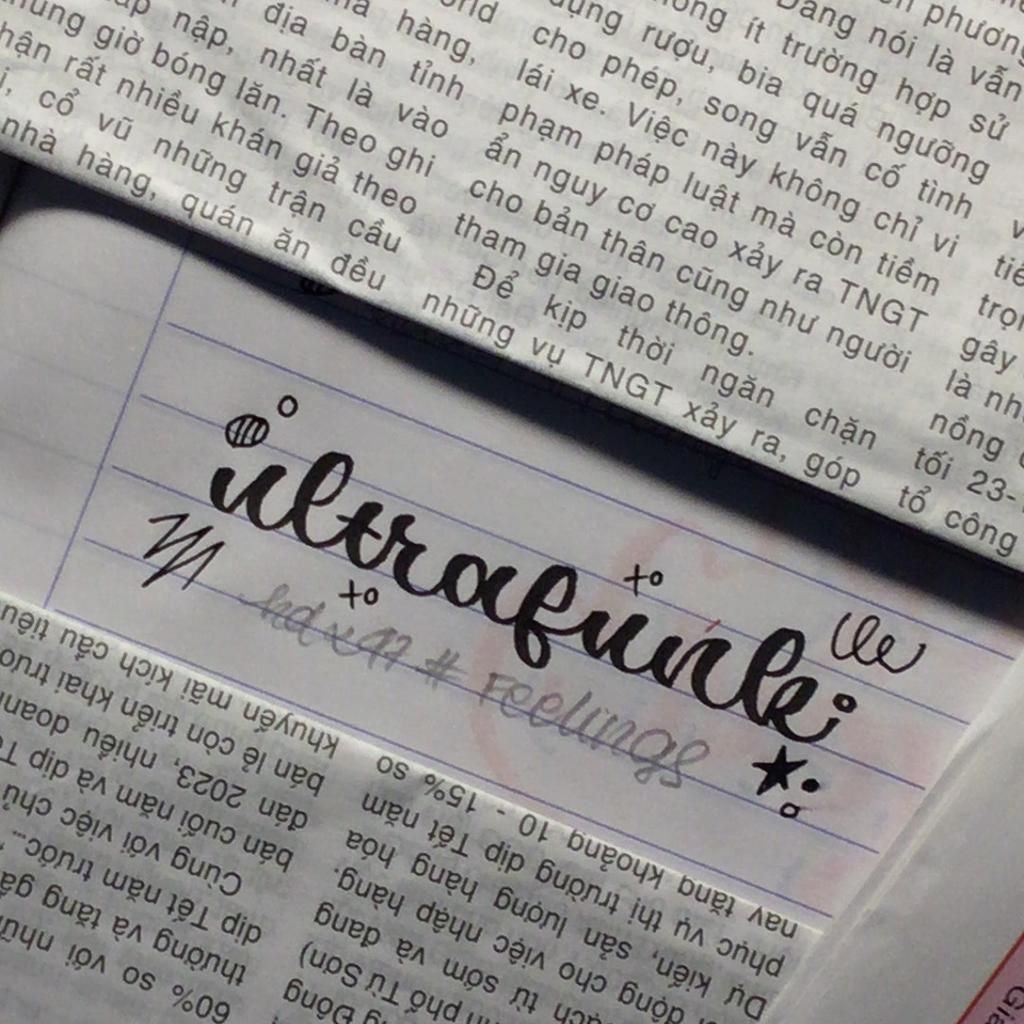 phương
Đáng nói là vẫn
không ít trường hợp sử
dụng rượu, bia quá ngưỡng
cho phép, song vẫn cố tình
lái xe. Việc này không chỉ vi
phạm pháp luật mà còn tiềm
ẩn nguy cơ cao xảy ra TNGT
cho bản thân cũng như người
tham gia giao thông.
Để kịp thời ngăn chặn
những vụ TNGT xảy ra, góp
nập, nhất là vào
giờ bóng lăn. Theo ghi
rất nhiều khán giả theo
cổ vũ những trận cầu
nhà hàng, quán ăn đều
địa bàn tỉnh
hàng,
gây
là
nồng
tối 23-
tổ công
ultrafunki
# Feelings
nay tăng khoảng 10 - 15% so
phục vụ thị trường dịp Tết năm
Dự kiến, sản lượng hàng hóa
động cho việc nhập hàng.
từ sớm và đang
phố Từ Sơn)
Đông
khuyến mãi kích cầu tiêu
bán lẻ còn triển khai
dân 2023, nhiều doanh
bán cuối năm và dịp
Cùng với việc chủ
dịp Tết năm trước...
thường và tăng
60% so với